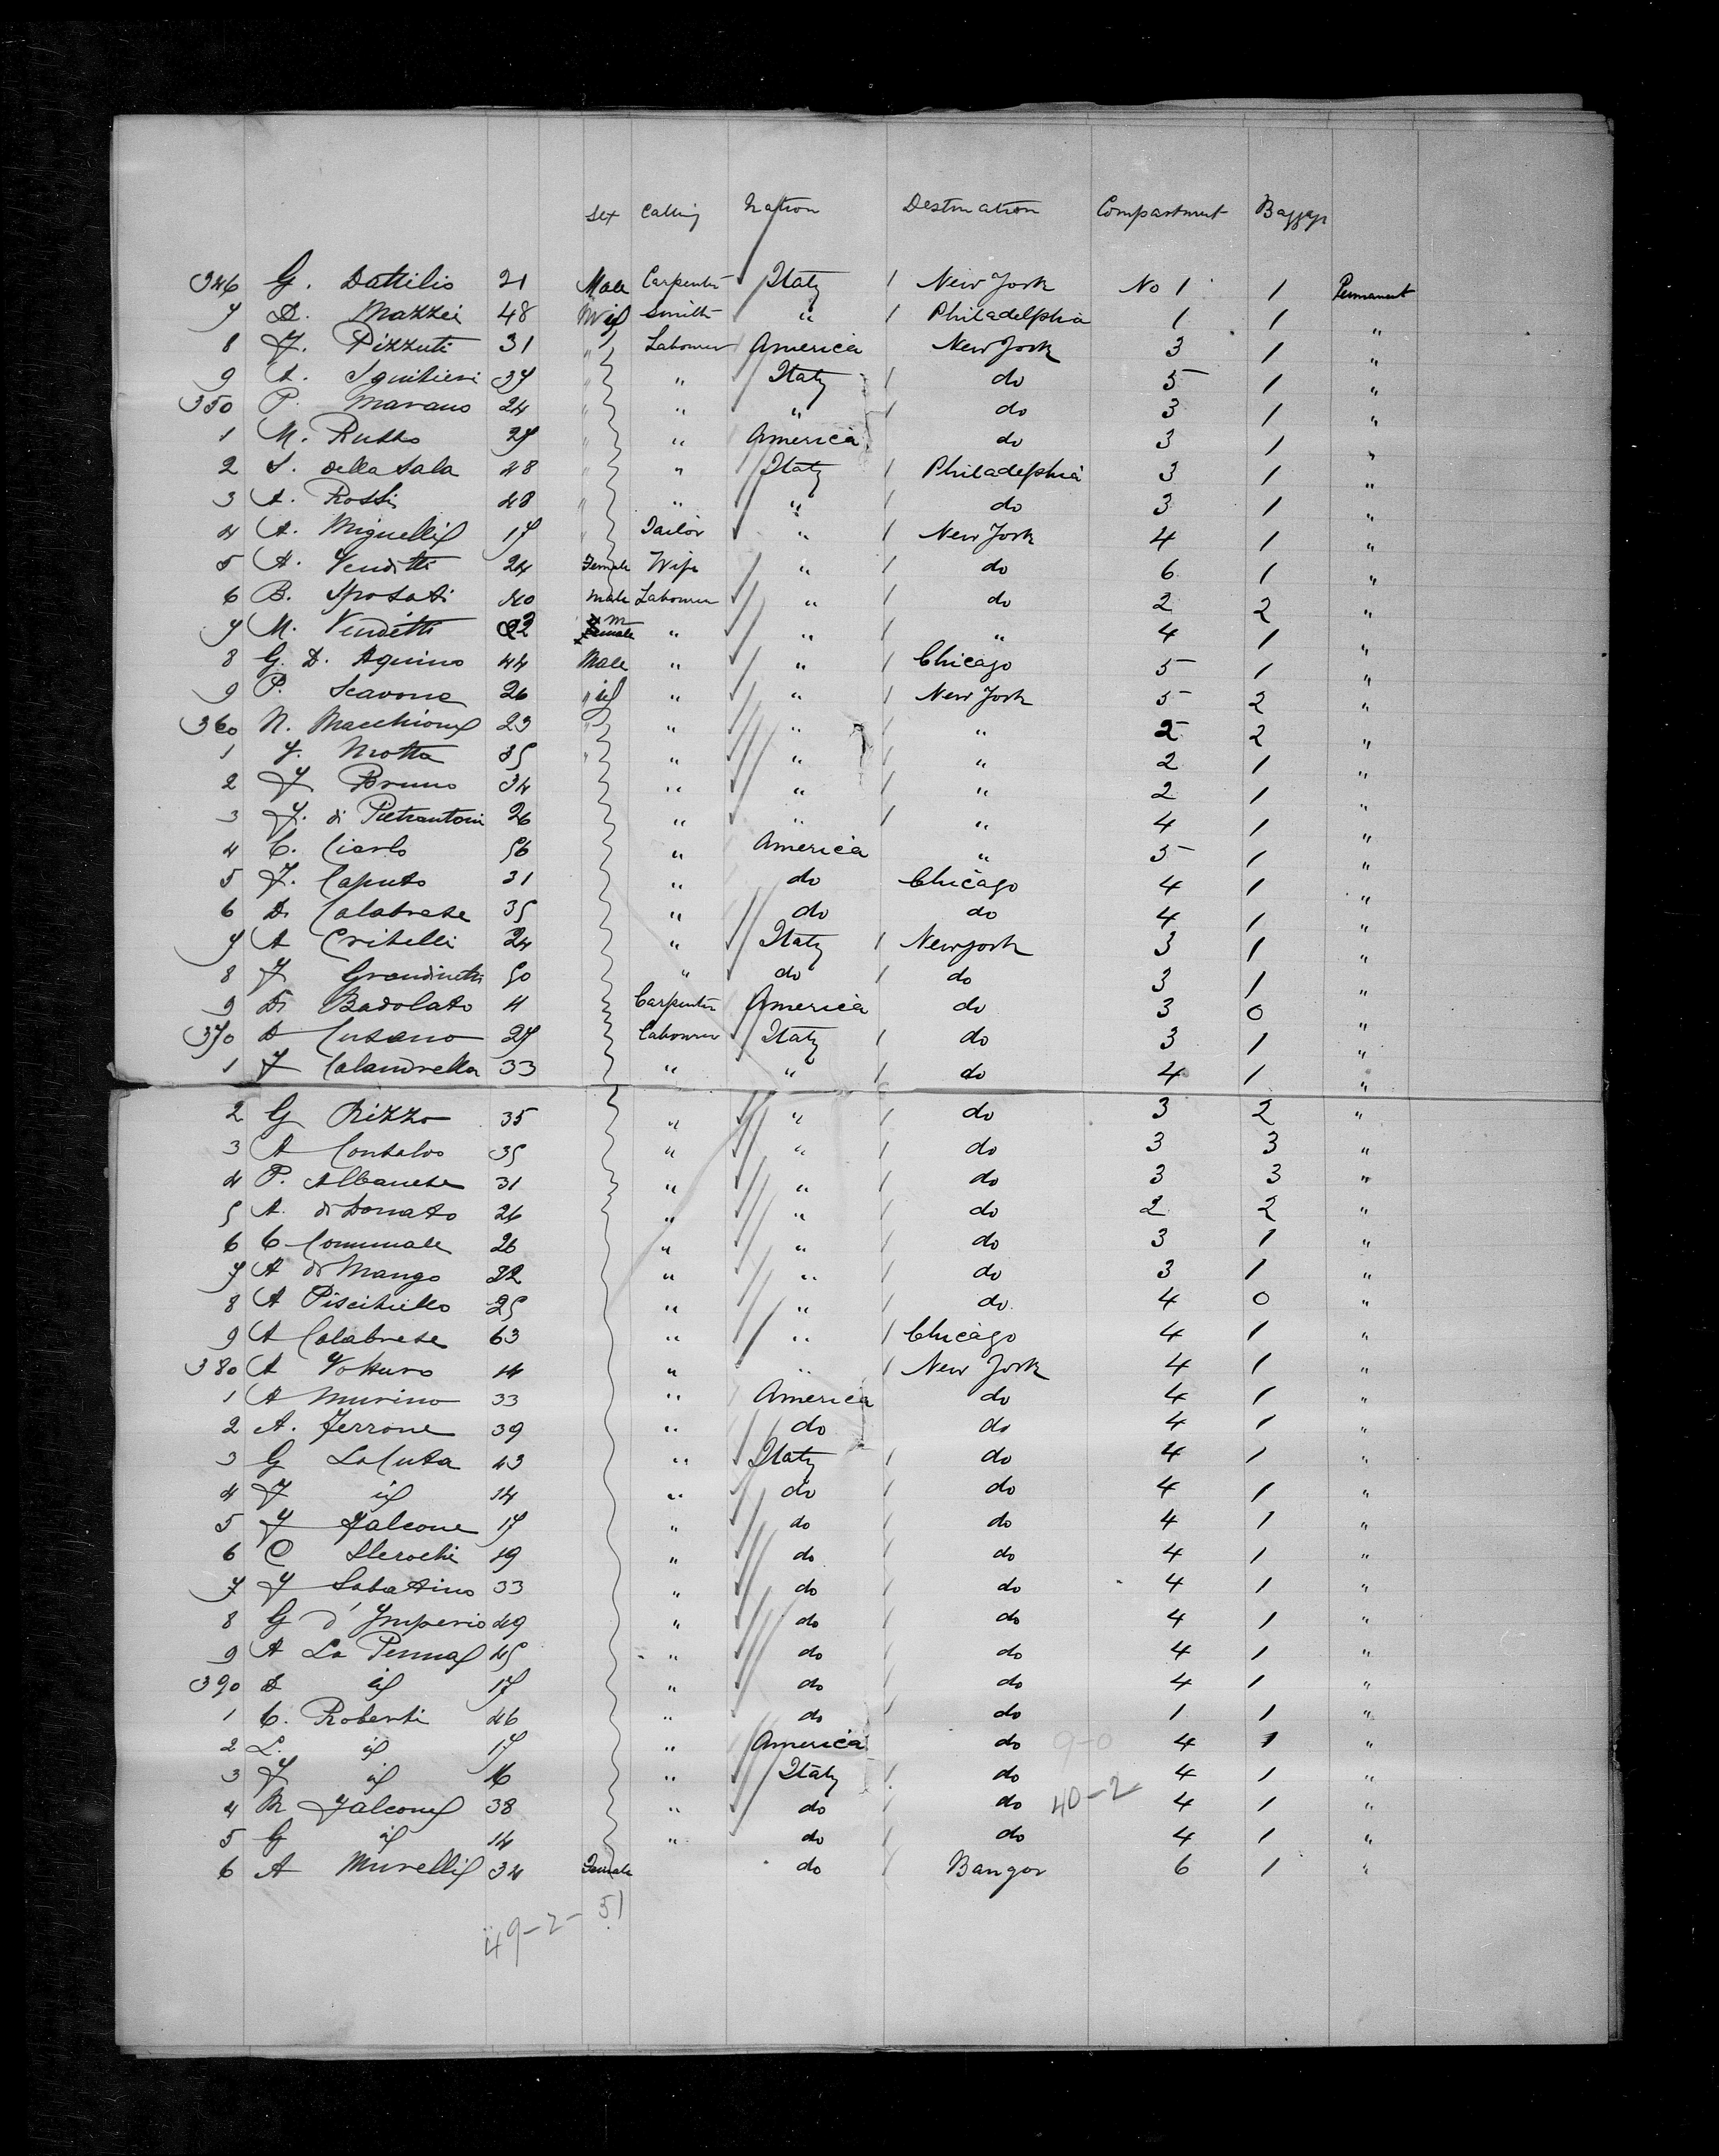 Sex Calling Nation Destination Compartment Baggage
346 G. Dattilio 21 Male Carpenter Italy 1 New York No 1 1 Permanent
7 D. Mazzei 48 Smith " 1 Philadelphia 1 1 "
8 F. Pizzuti 31 " Labourer America New York 3 1 "
9 A. 37 " " Italy 1 do 5 1 "
350 P. Marano 24 " " " 1 do 3 1 "
1 M. Russo 27 " " America do 3 1 "
2 S. Della Sala 48 " " Italy 1 Philadelphia 3 1 "
3 A. Rossi 48 " " " 1 do 3 1 "
4 A. Miguelli 17 " Tailor " 1 New York 4 1 "
5 A. Venditti 24 Female Wife " 1 do 6 1 "
6 B. Sposati 40 Male Labourer " 1 do 2 2 "
7 M. Venditti 22 m Female " " 1 " 4 1 "
8 G. D. Aquino 44 Male " " 1 Chicago 5 1 "
9 P. Scavone 26 " id " " 1 New York 5 2 "
360 N. Macchione 23 " " " 1 " 2 2 "
1 F. Motta 35 " " " 1 " 2 1 "
2 F Bruno 34 " " 1 " 2 1 "
3 F. di Pietrantoni 26 " " 1 " 4 1 "
4 C. Ciarlo 56 " America " 5 1 "
5 F. Caputo 31 " do Chicago 4 1 "
6 D. Calabrese 35 " do do 4 1 "
7 A Critelli 24 " Italy 1 New York 3 1 "
8 F Grandinetti 50 " do 1 do 3 1 "
9 D. Badolato 41 Carpenter America do 3 0 "
370 D Cusano 27 Labourer Italy 1 do 3 1 "
1 F Calandrella 33 " " 1 do 4 1 "
2 G Rizzo 35 " " 1 do 3 2 "
3 A Consalvo 35 " " 1 do 3 3 "
4 P. Albanese 31 " " 1 do 3 3 "
5 A. di Donato 26 " " 1 do 2 2 "
6 C Comunale 26 " " 1 do 3 1 "
7 A di Mango 22 " " 1 do 3 1 "
8 A Piscitiello 25 " " 1 do 4 0 "
9 A Calabrese 63 " " 1 Chicago 4 1 "
380 A Votturo 14 " " 1 New York 4 1 "
1 A Murino 33 " America do 4 1 "
2 A. Ferrone 39 " do do 4 1 "
3 G La Cuta 43 " Italy 1 do 4 1 "
4 F id 14 " do 1 do 4 1 "
5 F Falcone 17 " do 1 do 4 1 "
6 C 19 " do 1 do 4 1 "
7 F Sabatino 33 " do 1 do 4 1 "
8 G d'Imperio 49 " do 1 do 4 1 "
9 A La Penna 45 " do 1 do 4 1 "
390 D id 17 " do 1 do 4 1 "
1 C. Roberti 46 " do 1 do 1 1 "
2 L. id 17 " America do 9-0 4 1 "
3 F id 16 " Italy 1 do 4 1 "
4 M Falcone 38 " do 1 do 40-2 4 1 "
5 G id 14 " do 1 do 4 1 "
6 A Murelli 34 Female do 1 Bangor 6 1 "
49-2- 51